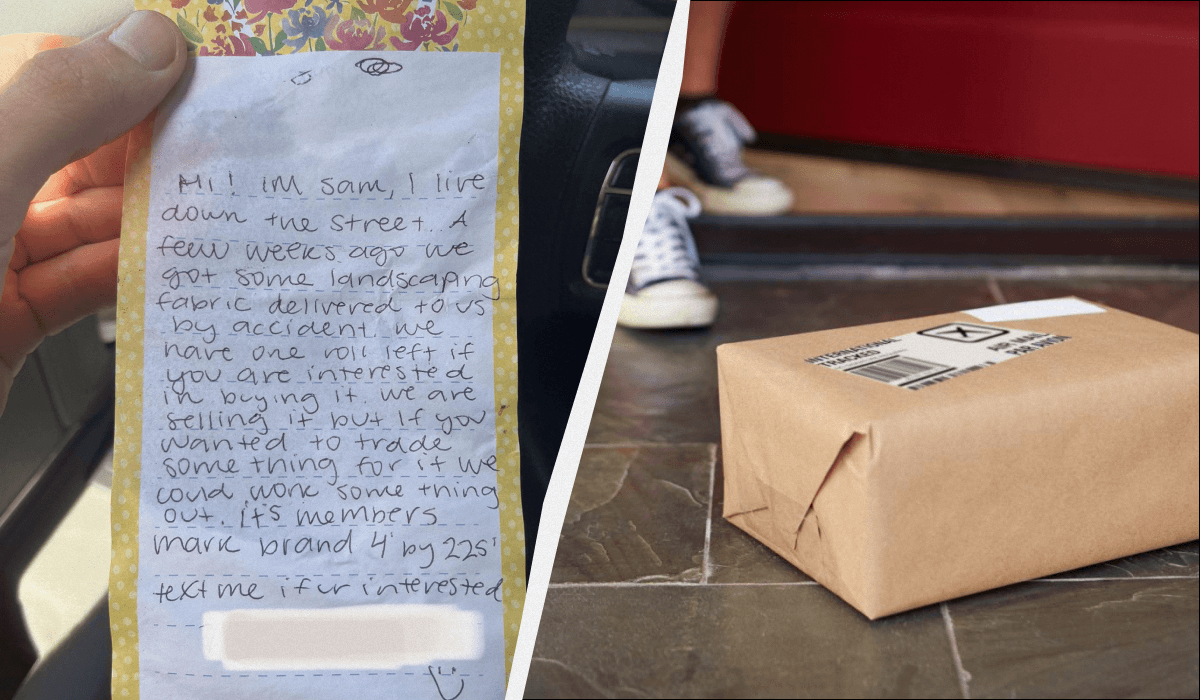 Hi! im sam, I live
down the street. A
few weeks ago we
got some landscaping
fabric delivered to us
by accident. we
have one roll left if
you are interested
in buying it. we are
selling it but if you
wanted to trade
something for it we
could work something
out. it's members
mark brand 4' by 225'
text me if ur interested
INTERNATIONAL
TRACKED
X
AIR MAIL
PAR AVION